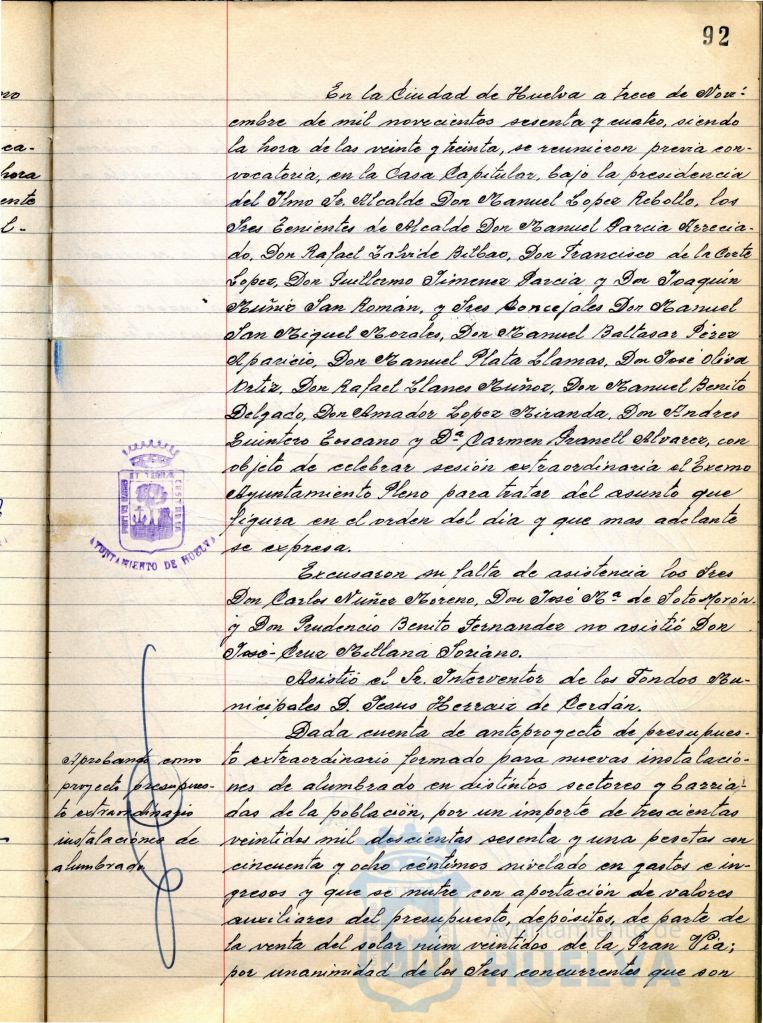 92
no
En la Ciudad de Huelva a trece de Novi-
embre de mil novecientos sesenta y cuatro, siendo
ca-
la hora de las veinte y treinta, se reunieron previa con-
hora
vocatoria, en la Casa Capitular, bajo la presidencia
ente
del Ilmo Sr. Alcalde Don Manuel Lopez Rebollo, los
l-
Sres Tenientes de Alcalde Don Manuel Garcia Arrecia-
do, Don Rafael Zalvide Bilbao, Don Francisco de la Corte
Lopez, Don Guillermo Jimenez Garcia y Don Joaquín
Muñiz San Román, y Sres Concejales Don Manuel
San Miguel Morales, Don Manuel Baltasar Pérez
Aparicio, Don Manuel Plata Llamas, Don José Oliva
Ortiz, Don Rafael Llanes Muñoz, Don Manuel Benito
Delgado, Don Amador Lopez Miranda, Don Andres
Quintero Toscano y Dª Carmen Granell Alvarez, con
objeto de celebrar sesión extraordinaria el Excmo
Ayuntamiento Pleno para tratar del asunto que
figura en el orden del dia y que mas adelante
se expresa.
AYUNTAMIENTO DE HUELVA
Excusaron su falta de asistencia los Sres
Don Carlos Nuñez Moreno, Don José Mª de Soto Morón
y Don Prudencio Benito Fernandez no asistió Don
José Cruz Millana Soriano.
Asistió el Sr. Interventor de los Fondos Mu-
nicipales D. Jesus Herraiz de Cerdán.
Dada cuenta de anteproyecto de presupues-
to extraordinario formado para nuevas instalacio-
nes de alumbrado en distintos sectores y barria-
das de la población, por un importe de trescientas
veintidos mil doscientas sesenta y una pesetas con
cincuenta y ocho céntimos nivelado en gastos e in-
gresos y que se nutre con aportación de valores
auxiliares del presupuesto, depositos, de parte de
la venta del solar núm veintidos de la Gran Via;
por unanimidad de los Sres concurrentes que son
Aprobando como
proyecto presupues-
to extraordinario
instalaciones de
alumbrado
Ayuntamiento de
HUELVA